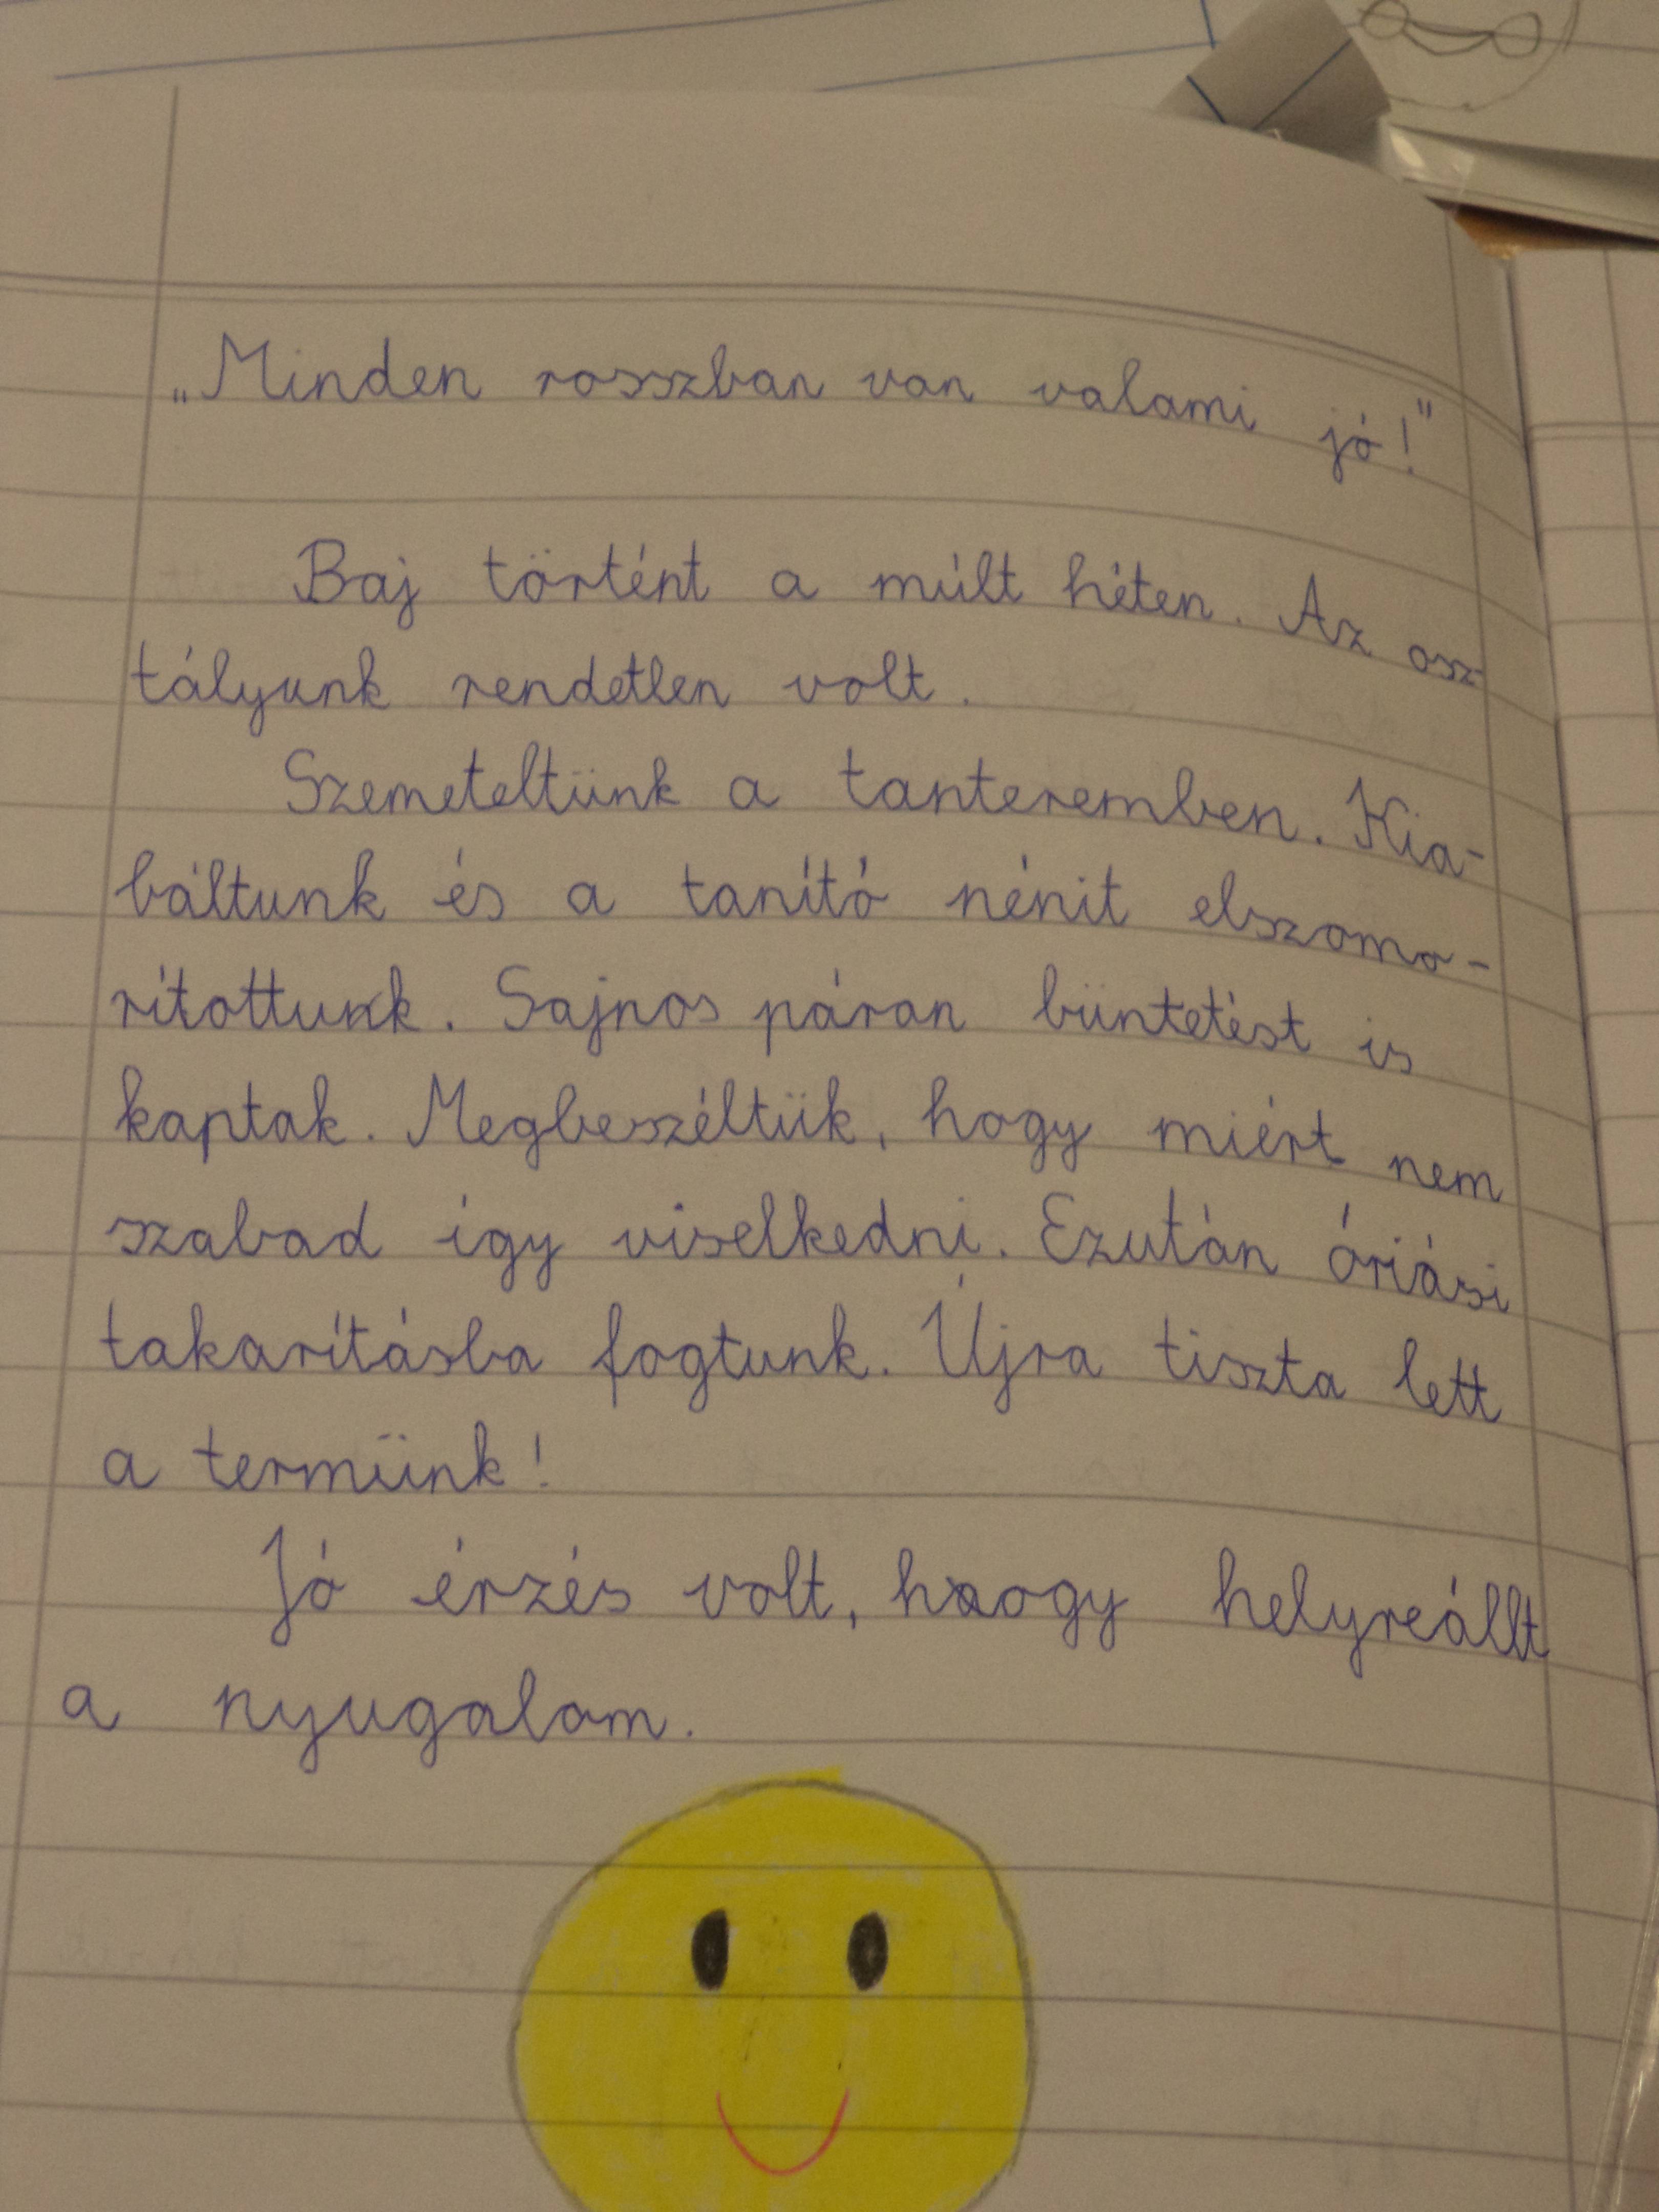 „Minden rosszban van valami jó!”
Baj történt a múlt héten. Az osz-
tályunk rendetlen volt.
Szemeteltünk a tanteremben. Kia-
báltunk és a tanító nénit elszomo-
rítottunk. Sajnos páran büntetést is
kaptak. Megbeszéltük, hogy miért nem
szabad így viselkedni. Ezután óriási
takarításba fogtunk. Újra tiszta lett
a termünk!
Jó érzés volt, hogy helyreállt
a nyugalom.